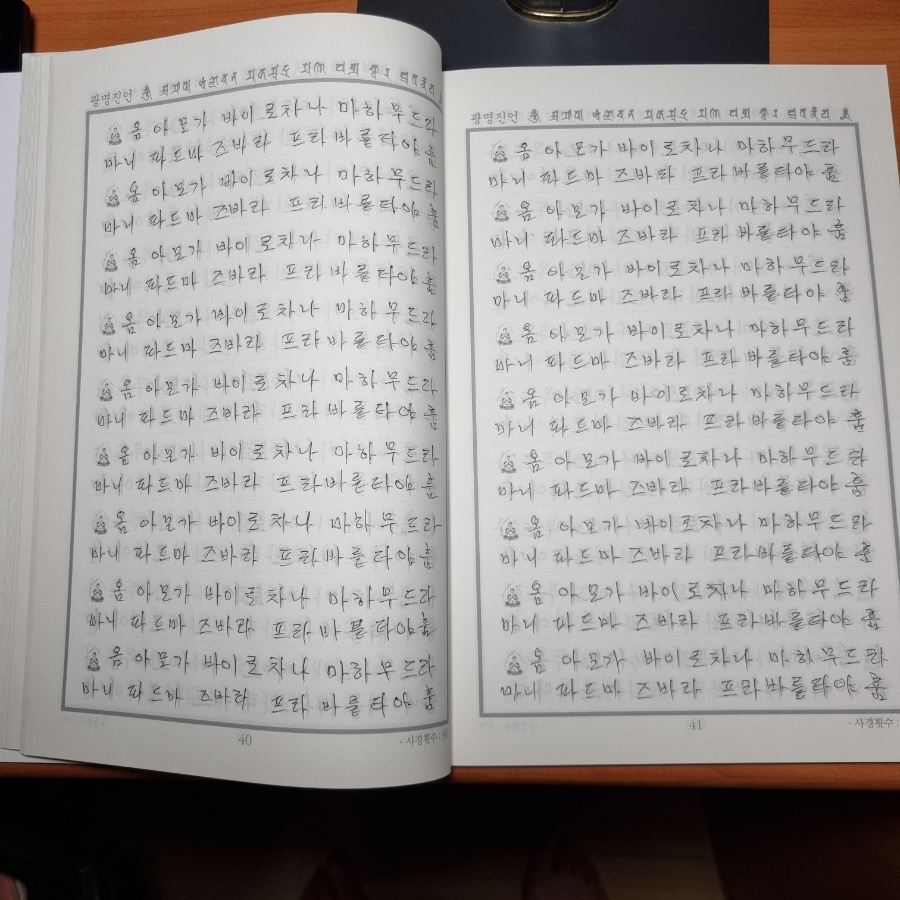 광명진언
옴 아모가 바이로차나 마하무드라
마니 파드마 즈바라 프라바를타야 훔
옴 아모가 바이로차나 마하무드라
마니 파드마 즈바라 프라바를타야 훔
옴 아모가 바이로차나 마하무드라
마니 파드마 즈바라 프라바를타야 훔
옴 아모가 바이로차나 마하무드라
마니 파드마 즈바라 프라바를타야 훔
옴 아모가 바이로차나 마하무드라
마니 파드마 즈바라 프라바를타야 훔
옴 아모가 바이로차나 마하무드라
마니 파드마 즈바라 프라바를타야 훔
옴 아모가 바이로차나 마하무드라
마니 파드마 즈바라 프라바를타야 훔
옴 아모가 바이로차나 마하무드라
마니 파드마 즈바라 프라바를타야 훔
옴 아모가 바이로차나 마하무드라
마니 파드마 즈바라 프라바를타야 훔
40
· 사경횟수 :
광명진언
옴 아모가 바이로차나 마하무드라
마니 파드마 즈바라 프라바를타야 훔
옴 아모가 바이로차나 마하무드라
마니 파드마 즈바라 프라바를타야 훔
옴 아모가 바이로차나 마하무드라
마니 파드마 즈바라 프라바를타야 훔
옴 아모가 바이로차나 마하무드라
마니 파드마 즈바라 프라바를타야 훔
옴 아모가 바이로차나 마하무드라
마니 파드마 즈바라 프라바를타야 훔
옴 아모가 바이로차나 마하무드라
마니 파드마 즈바라 프라바를타야 훔
옴 아모가 바이로차나 마하무드라
마니 파드마 즈바라 프라바를타야 훔
옴 아모가 바이로차나 마하무드라
마니 파드마 즈바라 프라바를타야 훔
옴 아모가 바이로차나 마하무드라
마니 파드마 즈바라 프라바를타야 훔
41
· 사경횟수 :